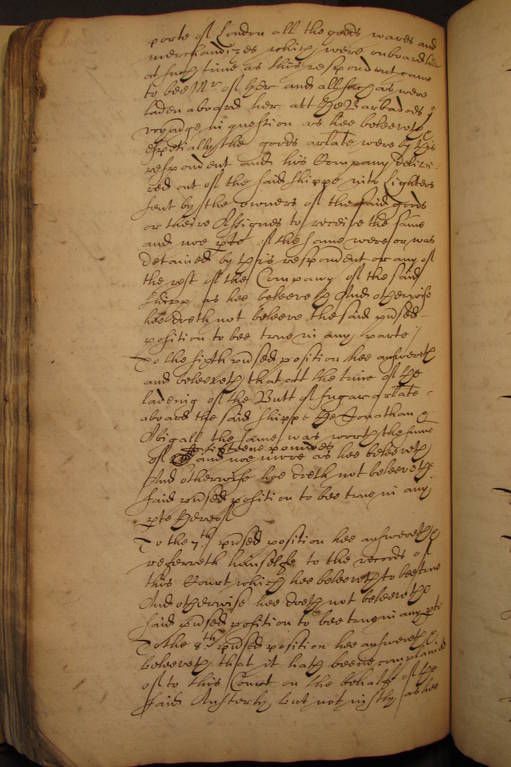 porte of London all the goods wares and
merchandizes which were onboard her
at such time as this respondent came
to bee Mr of her and all such as were
laden aboard her att the Barbadoes ye
voyadge in question as hee beleeveth &
espetially the goods arlate were by this
respondent and his Company delive-
red out of the said shippe into Lighters
sent by the owners of the said goods
or theire Assignes to receive the same
and noe pte of the same were or was
detained by this respondent or any of
the rest of the Company of the said
shipp as hee beleeveth And otherwise
hee doth not beleeve the said pdsed
position to bee true in any parte
To the sixth pdsed position hee answereth
and beleeveth that att the time of the
ladeing of the Butt of sugar arlate
aboard the said shippe the Jonathan &
Abigall the same was worth the summe
of fifteene poundes
and noe more as hee beleeveth
And otherwise hee doth not beleeve the
said pdsed position to bee true in any
pte thereof
To the 7th pdsed position hee answereth &
referreth himselfe to the records of
this Court which hee beleeveth to bee true
And otherwise hee doeth not beleeve the
said pdsed position to bee true in any pte
To the 8th pdsed position hee answereth &
beleeveth that it hath beene complained
of to this Court on the behalfe of the
said but not justly as hee